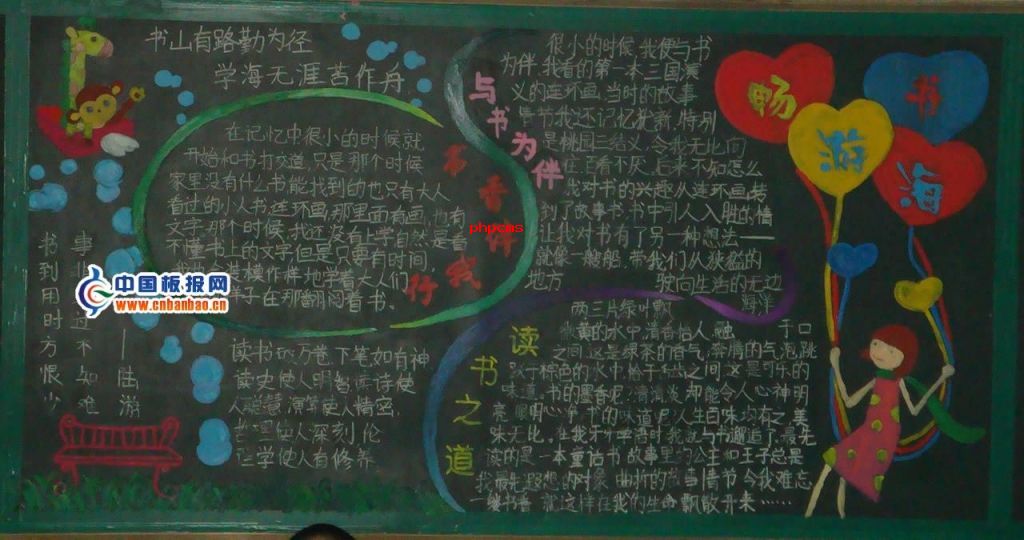 书山有路勤为径
学海无涯苦作舟
在记忆中很小的时候就
开始和书打交道,只是那个时候
家里没有什么书能找到的也只有大人
看过的小人书连环画,那里面有画,也有
文字,那个时候,我还没有上学,自然是看
不懂书上的文字但是只要有时间,
模作样地学着大人们
在那翻阅着书。
书香伴
我行
phpcms
中国板报网
www.cnbanbao.cn
书到用时方恨少
事
过不知难
读书破万卷下笔如有神
读史使人明智读诗使
人聪慧,演算使人精密,
哲理使人深刻伦
理学使人有修养
与书为伴
很小的时候,我便与书
为伴,我看的第一本三国演
义的连环画,当时的故事
情节我还记忆犹新,特别
是桃园三结义,令我无比
百看不厌,后来不知怎么
我对书的兴趣从连环画转
到了故事书,书中引人入胜的情
让我对书有了另一种想法——
就像一艘船,带我们从狭隘的
地方 驶向生活的无边
海洋
读书之道
两三片绿叶飘
的水中,清香怡人,融 于口
之间,这是绿茶的香气;奔腾的气泡跳
跃于棕色的水中 之间,这是可乐的
味道。书的墨香呢?清清淡淡却能令人心神明
书的味道呢?人生百味均有之,美
味无比。在我牙牙学语时,我就与书邂逅了,最先
读的是一本童话书,故事里的公主和王子总是
我最先 的对象,曲折的故事情节令我难忘
一缕书香,就这样在我的生命飘散开来……
畅游书海